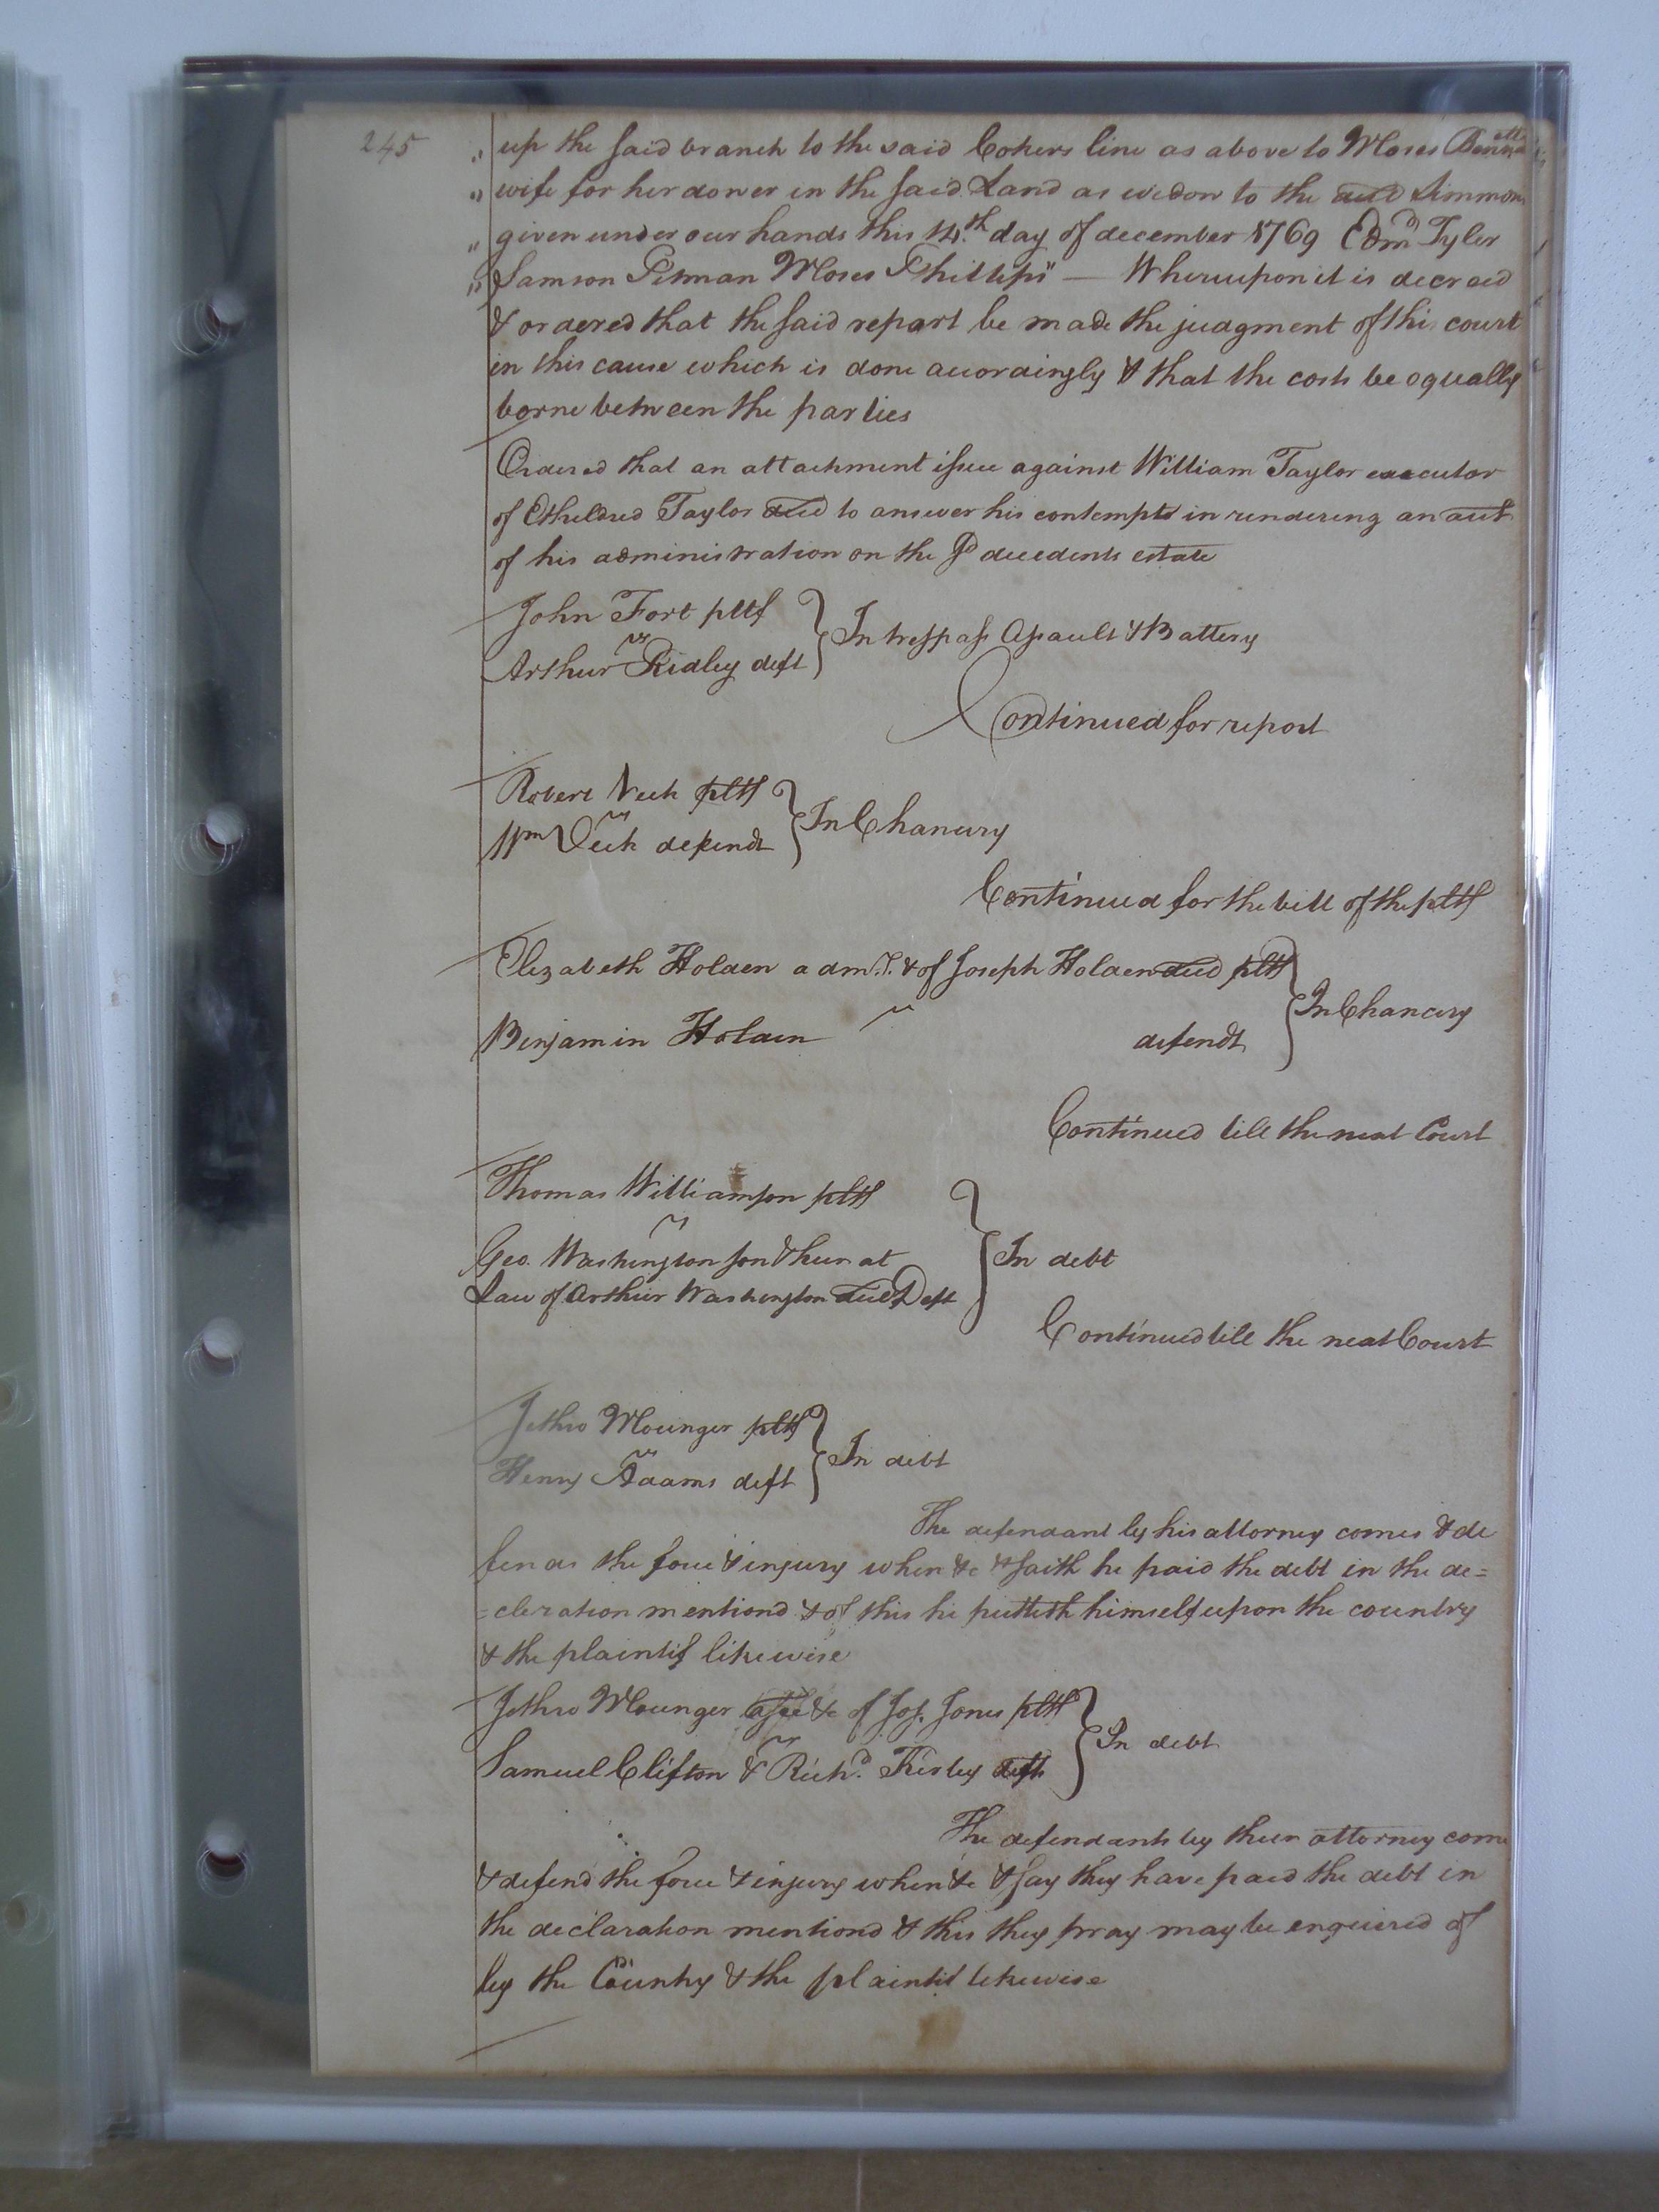 245
" up the said branch to the said Cokers line as above to Moses Bennetts
" wife for her dower in the said Land as widow to the decd Simmons
" given under our hands this 14th day of december 1769 Edmd Tyler
" Samson Pitman Moses Phillips" — Whereupon it is decreed
& ordered that the said report be made the judgment of this court
in this cause which is done accordingly & that the costs be equally
borne between the parties
Ordered that an attachment issue against William Taylor executor
of Etheldred Taylor decd to answer his contempts in rendering an acct
of his administration on the sd decedents estate
John Fort pltf
vs
In trespass Assault & Battery
Arthur Ridley deft
Continued for report
Robert Vick pltf
vs
In Chancery
Wm Vick defendt
Continued for the bill of the pltf
Elizabeth Holden admr. & of Joseph Holden decd pltf
vs
In Chancery
Benjamin Holden defendt
Continued till the next Court
Thomas Williamson pltf
vs
Geo. Washington son & heir at
In debt
Law of Arthur Washington decd Deft
Continued till the next Court
Jethro Mounger pltf
vs
In debt
Henry Adams deft
The defendant by his attorney comes & de
fends the force & injury when &c & saith he paid the debt in the de=
=cleration mentiond & of this he putteth himself upon the country
& the plaintif likewise
Jethro Mounger assee &c of Jos. Jones pltf
vs
In debt
Samuel Clifton & Richd. Kirby defts
The defendants by their attorney come
& defend the force & injury when &c & say they have paid the debt in
the declaration mentiond & this they pray may be enquired of
by the Country & the plaintif likewise